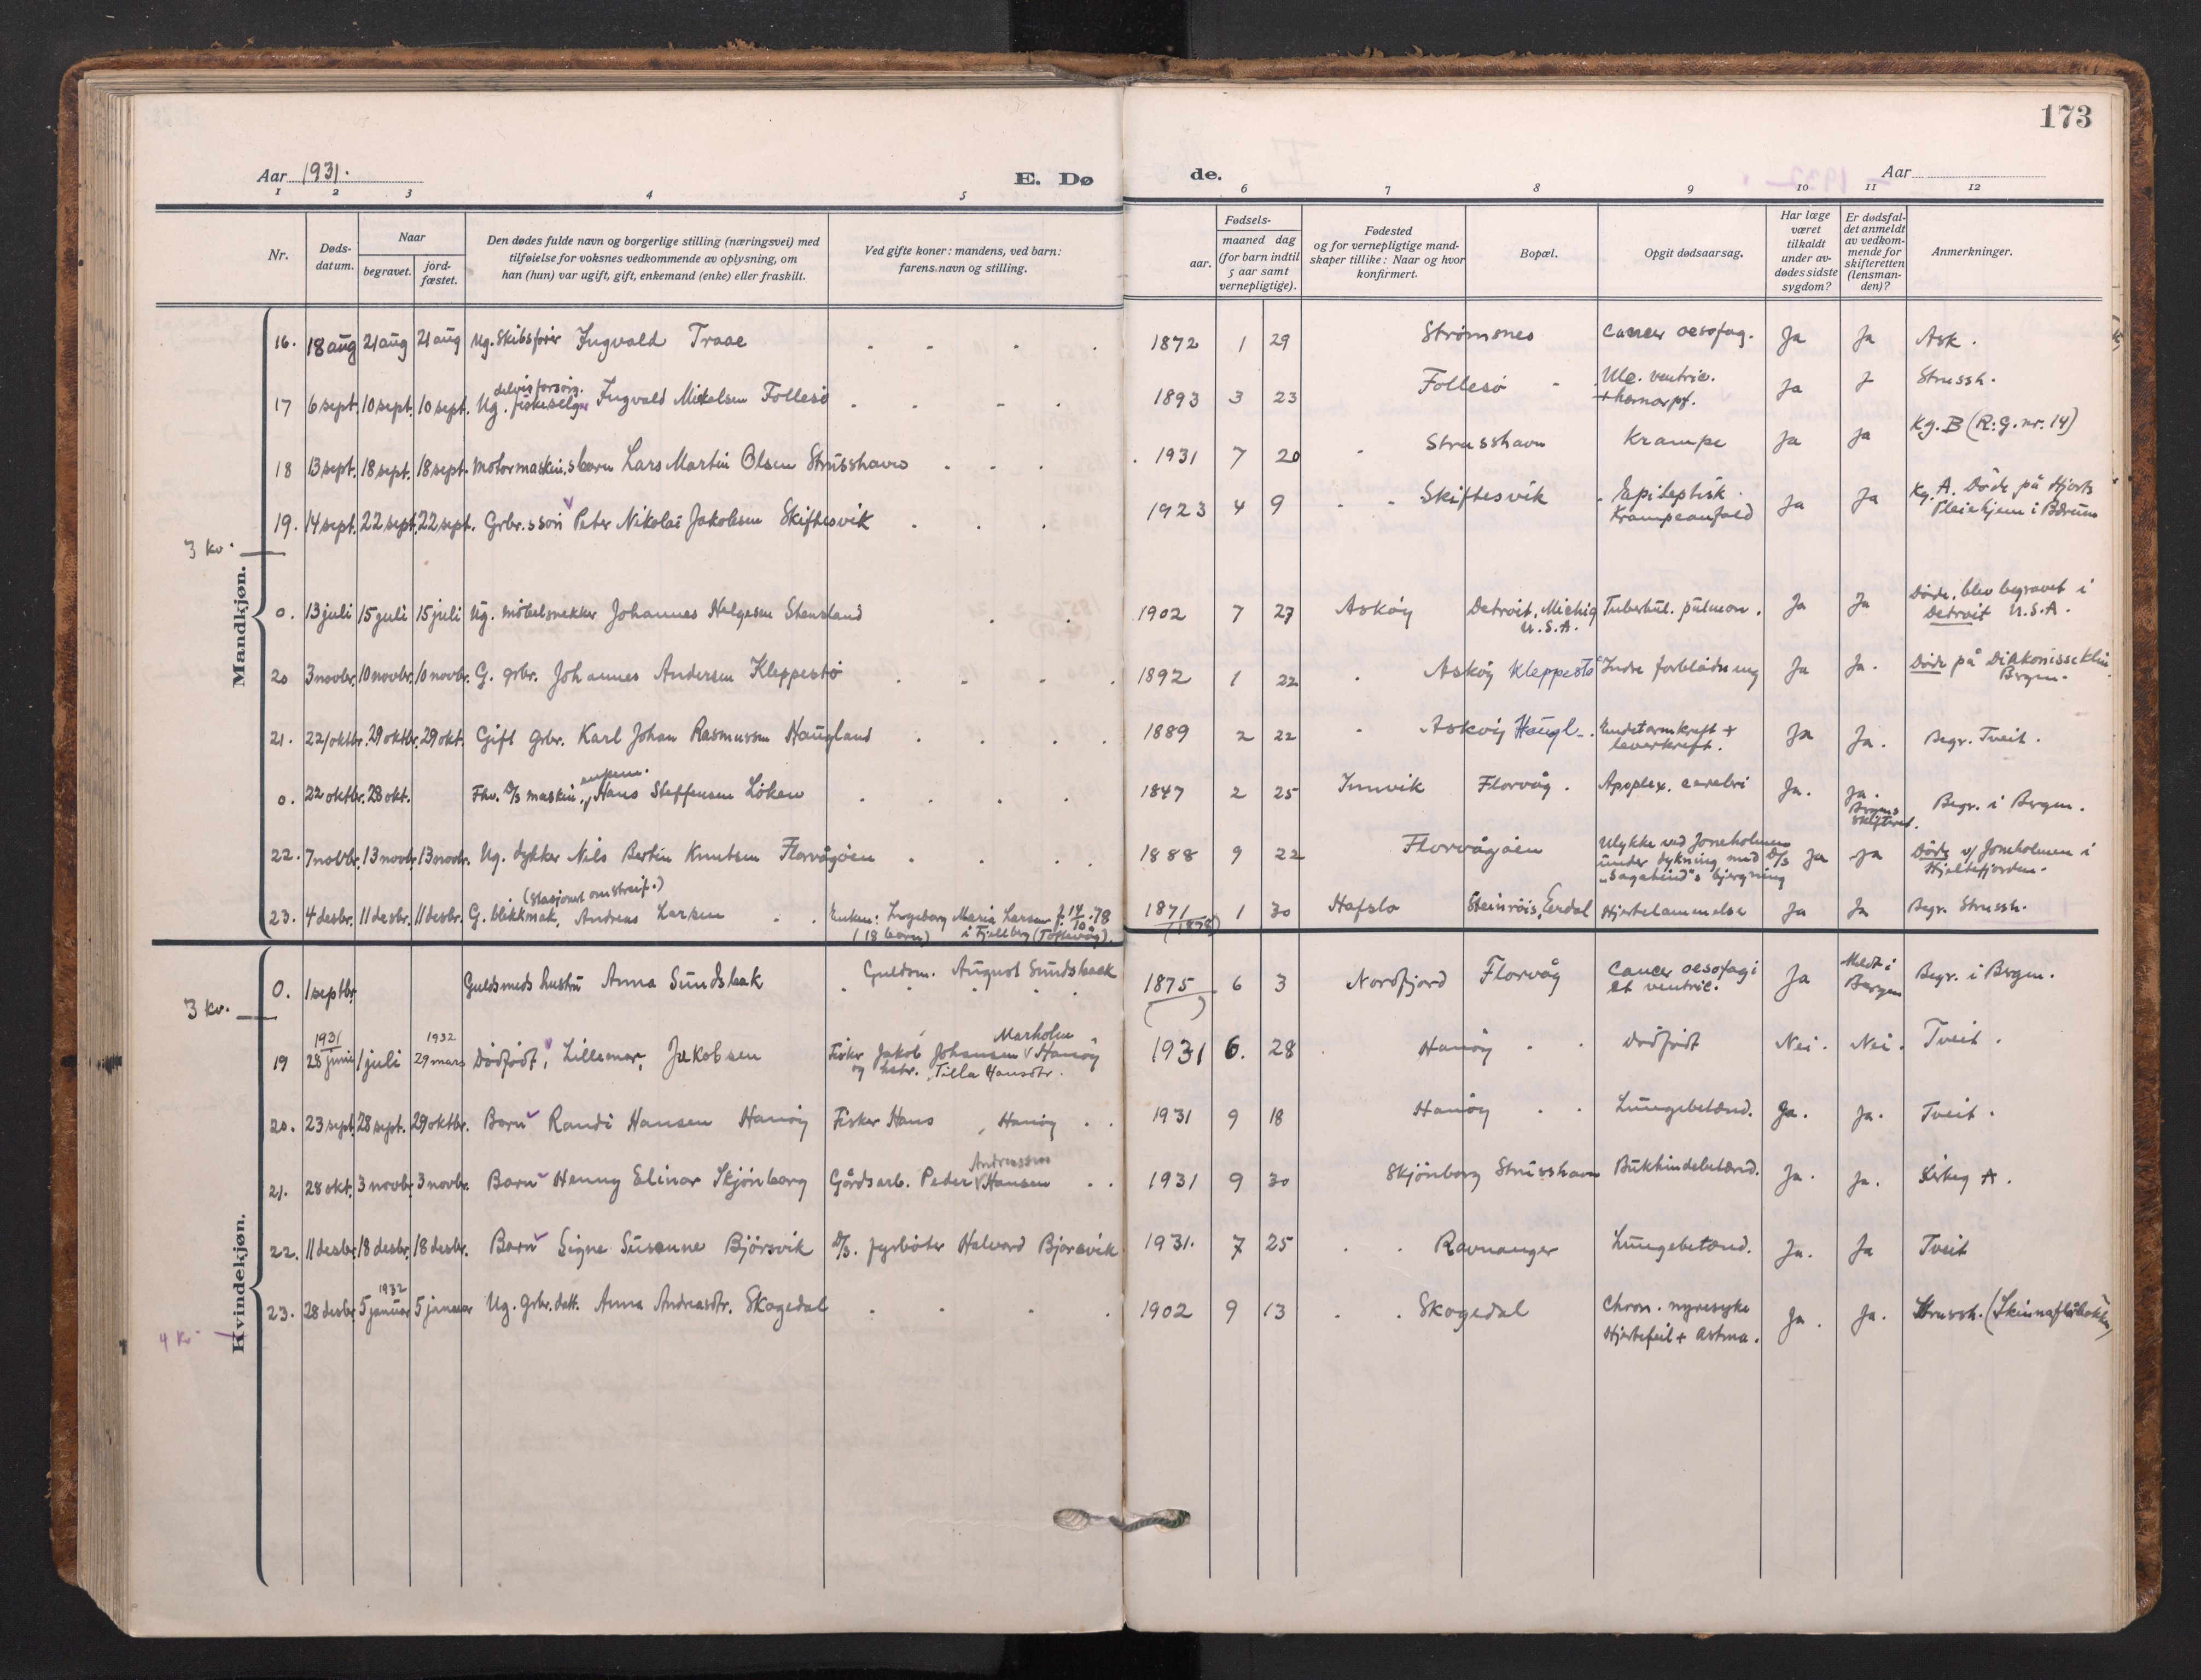 173
Aar 1931. E. Dø de. Aar
1 2 3 4 5 6 7 8 9 10 11 12
Nr. Døds-datum. Naar begravet. jord-fæstet. Den dødes fulde navn og borgerlige stilling (næringsvei) med tilføielse for voksnes vedkommende av oplysning, om han (hun) var ugift, gift, enkemand (enke) eller fraskilt. Ved gifte koner: mandens, ved barn: farens navn og stilling. Fødsels- aar. maaned dag (for barn indtil 5 aar samt vernepligtige). Fødested og for vernepligtige mand-skaper tillike: Naar og hvor konfirmert. Bopæl. Opgit dødsaarsag. Har læge været tilkaldt under av-dødes sidste sygdom? Er dødsfal-det anmeldt av vedkom-mende for skifteretten (lensman-den)? Anmerkninger.
Mandkjøn.
16. 18 aug 21 aug 21 aug Ug. Skibsfører Ingvald Traae 1872 1 29 Strømsnes Cancer oesofag. Ja Ja Ask.
17 6 sept. 10 sept. 10 sept. Ug. delvis forsørg. fiskeselger Ingvald Mikalsen Follesø 1893 3 23 Follesø Ulc. ventric. Ja J Strussh.
18 13 sept. 18 sept. 18 sept. Motormaskin.s barn Lars Martin Olsen Strusshavn 1931 7 20 Strusshavn Krampe Ja Ja Kg. B (R: G. nr. 14)
19. 14 sept. 22 sept. 22 sept. Grbr.s søn Peter Nikolai Jakobsen Skiftesvik 1923 4 9 Skiftesvik Epileptisk Krampeanfald Ja Ja Kg. A. Døde på Hjorts Pleiehjem i Bærum
3 kv.
0. 13 juli 15 juli 15 juli Ug. møbelsnekker Johannes Helgesen Stensland 1902 7 27 Askøy Detroit, Michig U.S.A. Tuberkul. pulmon. Ja Ja Døde, blev begravet i Detroit U.S.A.
20 3 novbr. 10 novbr. 10 novbr. G. grbr. Johannes Andersen Kleppestø 1892 1 22 Askøy Kleppestø Indre forblødning Ja Ja. Døde på Diakonisseklin. Bergen.
21. 22 oktbr. 29 oktbr. 29 okt. Gift grbr. Karl Johan Rasmussen Haugland 1889 2 22 Askøy Haugl. Endetarmkreft + leverkreft. Ja Ja. Begr. Tveit.
0. 22 oktbr. 28 okt. Fhv. D/s maskin., enkem. Hans Steffensen Løken 1847 2 25 Innvik Florvåg. Apoplex. cerebri Ja. Ja. Bergens skifteret. Begr. i Bergen.
22. 7 novbr. 13 novbr. 13 novbr. Ug. dykker Nils Bertin Knutsen Florvågøen 1888 9 22 Florvågøen Ulykke ved Joneholmen under dykning med D/s "Sagatind"s bjergning Ja Ja Døde v/ Joneholmen i Hjeltefjorden.
23. 4 desbr. 11 desbr. 11 desbr. G. blikkmak. (stasjonert omstreif.) Andreas Larsen Enken: Ingeborg Maria Larsen f. 14/10.78 (18 barn) i Fjellberg 1871 (1878) 1 30 Hafslo Steinrøis, Erdal Hjertelammelse Ja Ja Begr. Strussh.
Kvindekjøn.
0. 1 septbr. Guldsmeds hustru Anna Sundsbak Guldsm. August Sundsbak 1875 6 3 Nordfjord Florvåg Cancer oesofagi et ventric. Ja Meldt i Bergen Begr. i Bergen.
3 kv.
19 1931 28 juni 1 juli 1932 29 mars Dødfødt, Lillemor, Jakobsen Fisker Jakob Johansen Marholm Hanøy og hstr. Tilla Hansdtr. 1931 6. 28 Hanøy Dødfødt Nei. Nei. Tveit.
20. 23 sept. 28 sept. 29 oktbr. Barn Randi Hansen Hanøy Fisker Hans Hanøy 1931 9 18 Hanøy Lungebetænd. Ja. Ja. Tveit.
21. 28 okt. 3 novbr. 3 novbr. Barn Henny Elinor Skjønberg Gårdsarb. Peder Andreassen Hansen 1931 9 30 Skjønberg Strusshavn Bukhindebetænd. Ja. Ja. Kirkeg A.
22. 11 desbr. 18 desbr. 18 desbr. Barn Signe Susanne Bjørsvik D/s. fyrbøter Halvard Bjørsvik 1931. 7 25 Ravnanger Lungebetænd. Ja. Ja Tveit
23. 28 desbr. 1932 5 januar 5 januar Ug. Grbr. datt. Anna Andreasdtr. Skogedal 1902 9 13 Skogedal Chron. nyresyke Hjertefeil + Astma. Ja. Ja. Strussh.
4 kv.